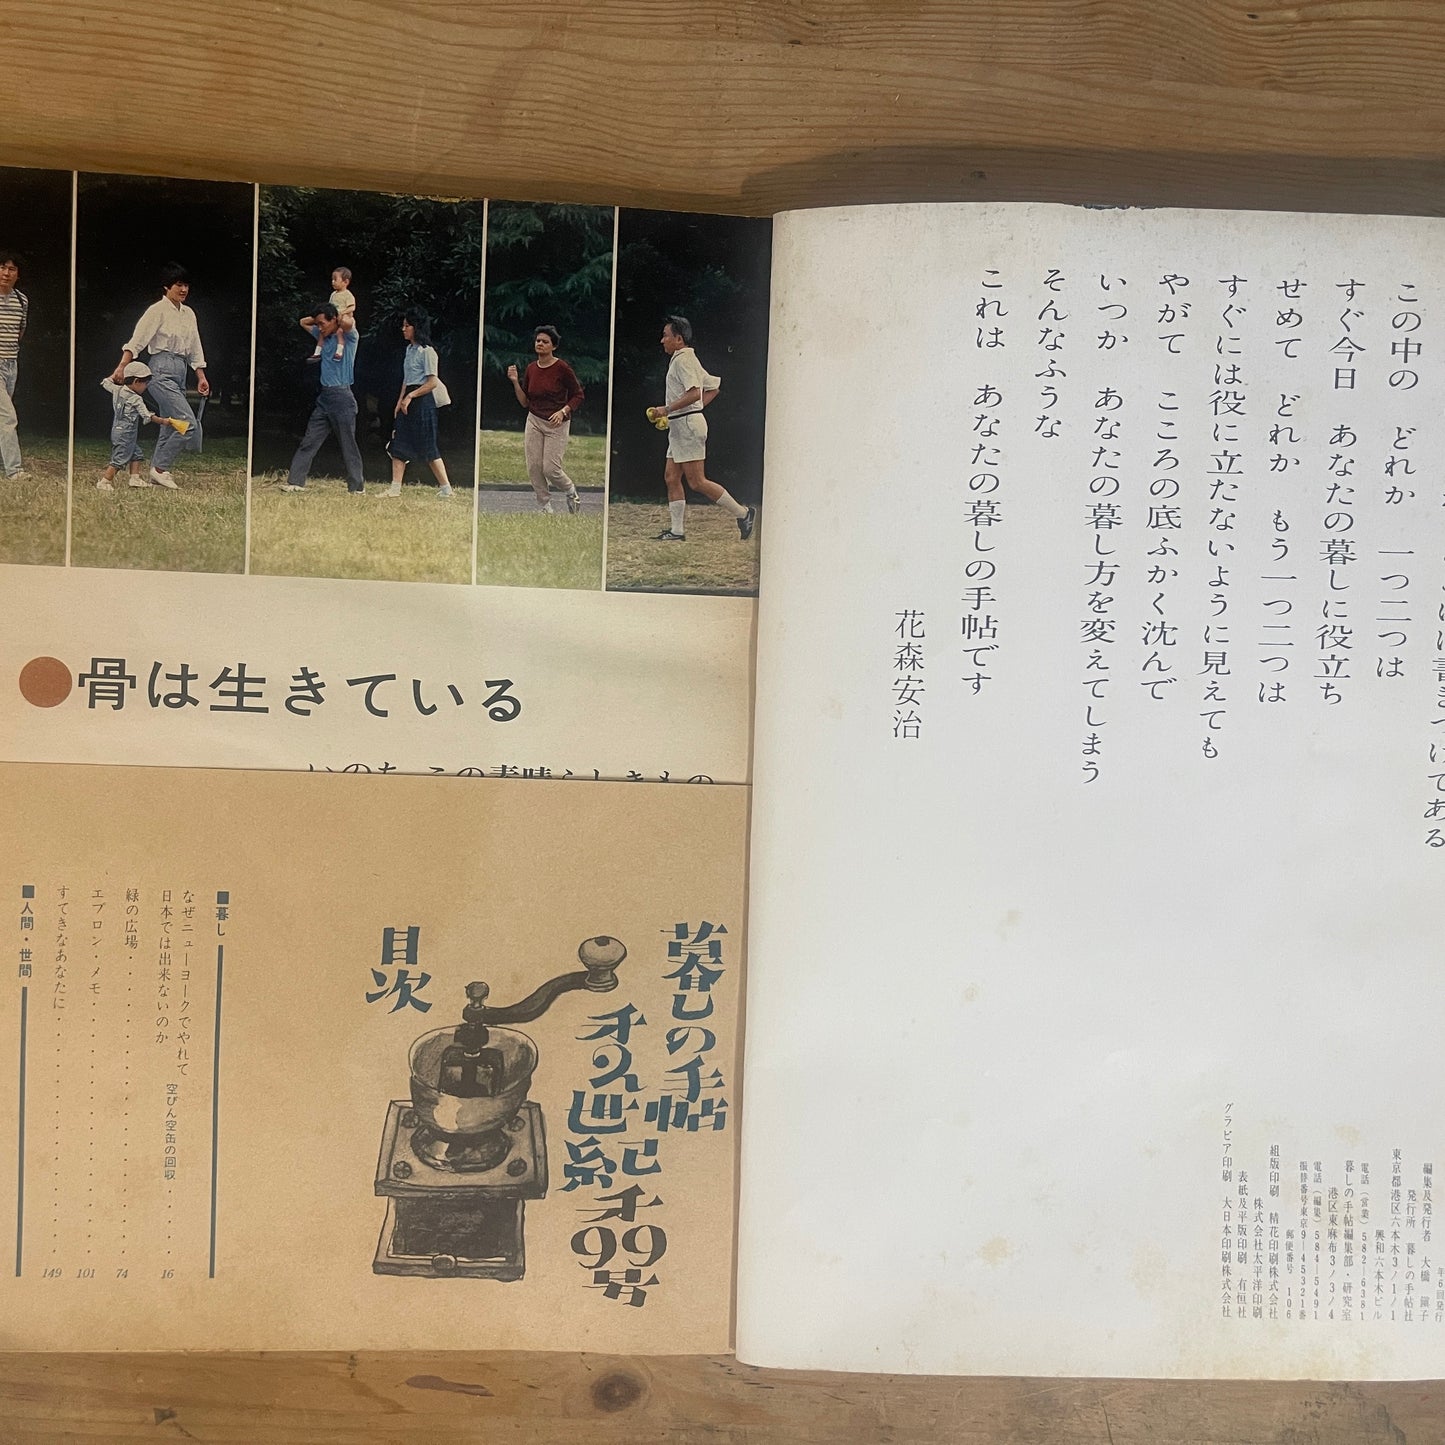 この中の　どれか　一つ二つは
すぐ今日　あなたの暮しに役立ち
せめて　どれか　もう一つ二つは
すぐには役に立たないように見えても
やがて　こころの底ふかく沈んで
いつか　あなたの暮し方を変えてしまう
そんなふうな
これは　あなたの暮しの手帖です
花森安治
年6回発行
編集及発行者　大橋　鎭子
発行所　暮しの手帖社
東京都港区六本木3ノ1ノ1
興和六本木ビル
電話（営業）582―6381
暮しの手帖編集部・研究室
港区東麻布3ノ3ノ4
電話（編集）584―5491
振替番号東京9―45321番
郵便番号　106
組版印刷　精花印刷株式会社
株式会社太平洋印刷
表紙及平版印刷　有恒社
グラビア印刷　大日本印刷株式会社
●骨は生きている
いのち　この素晴らしきもの
暮しの手帖
第2世紀第99号
目次
■暮し
なぜニューヨークでやれて
日本では出来ないのか　空びん空缶の回収・・・・16
緑の広場・・・・・・・・・・・・・・・・74
エプロン・メモ・・・・・・・・・・・・・・101
すてきなあなたに・・・・・・・・・・・・・149
■人間・世間